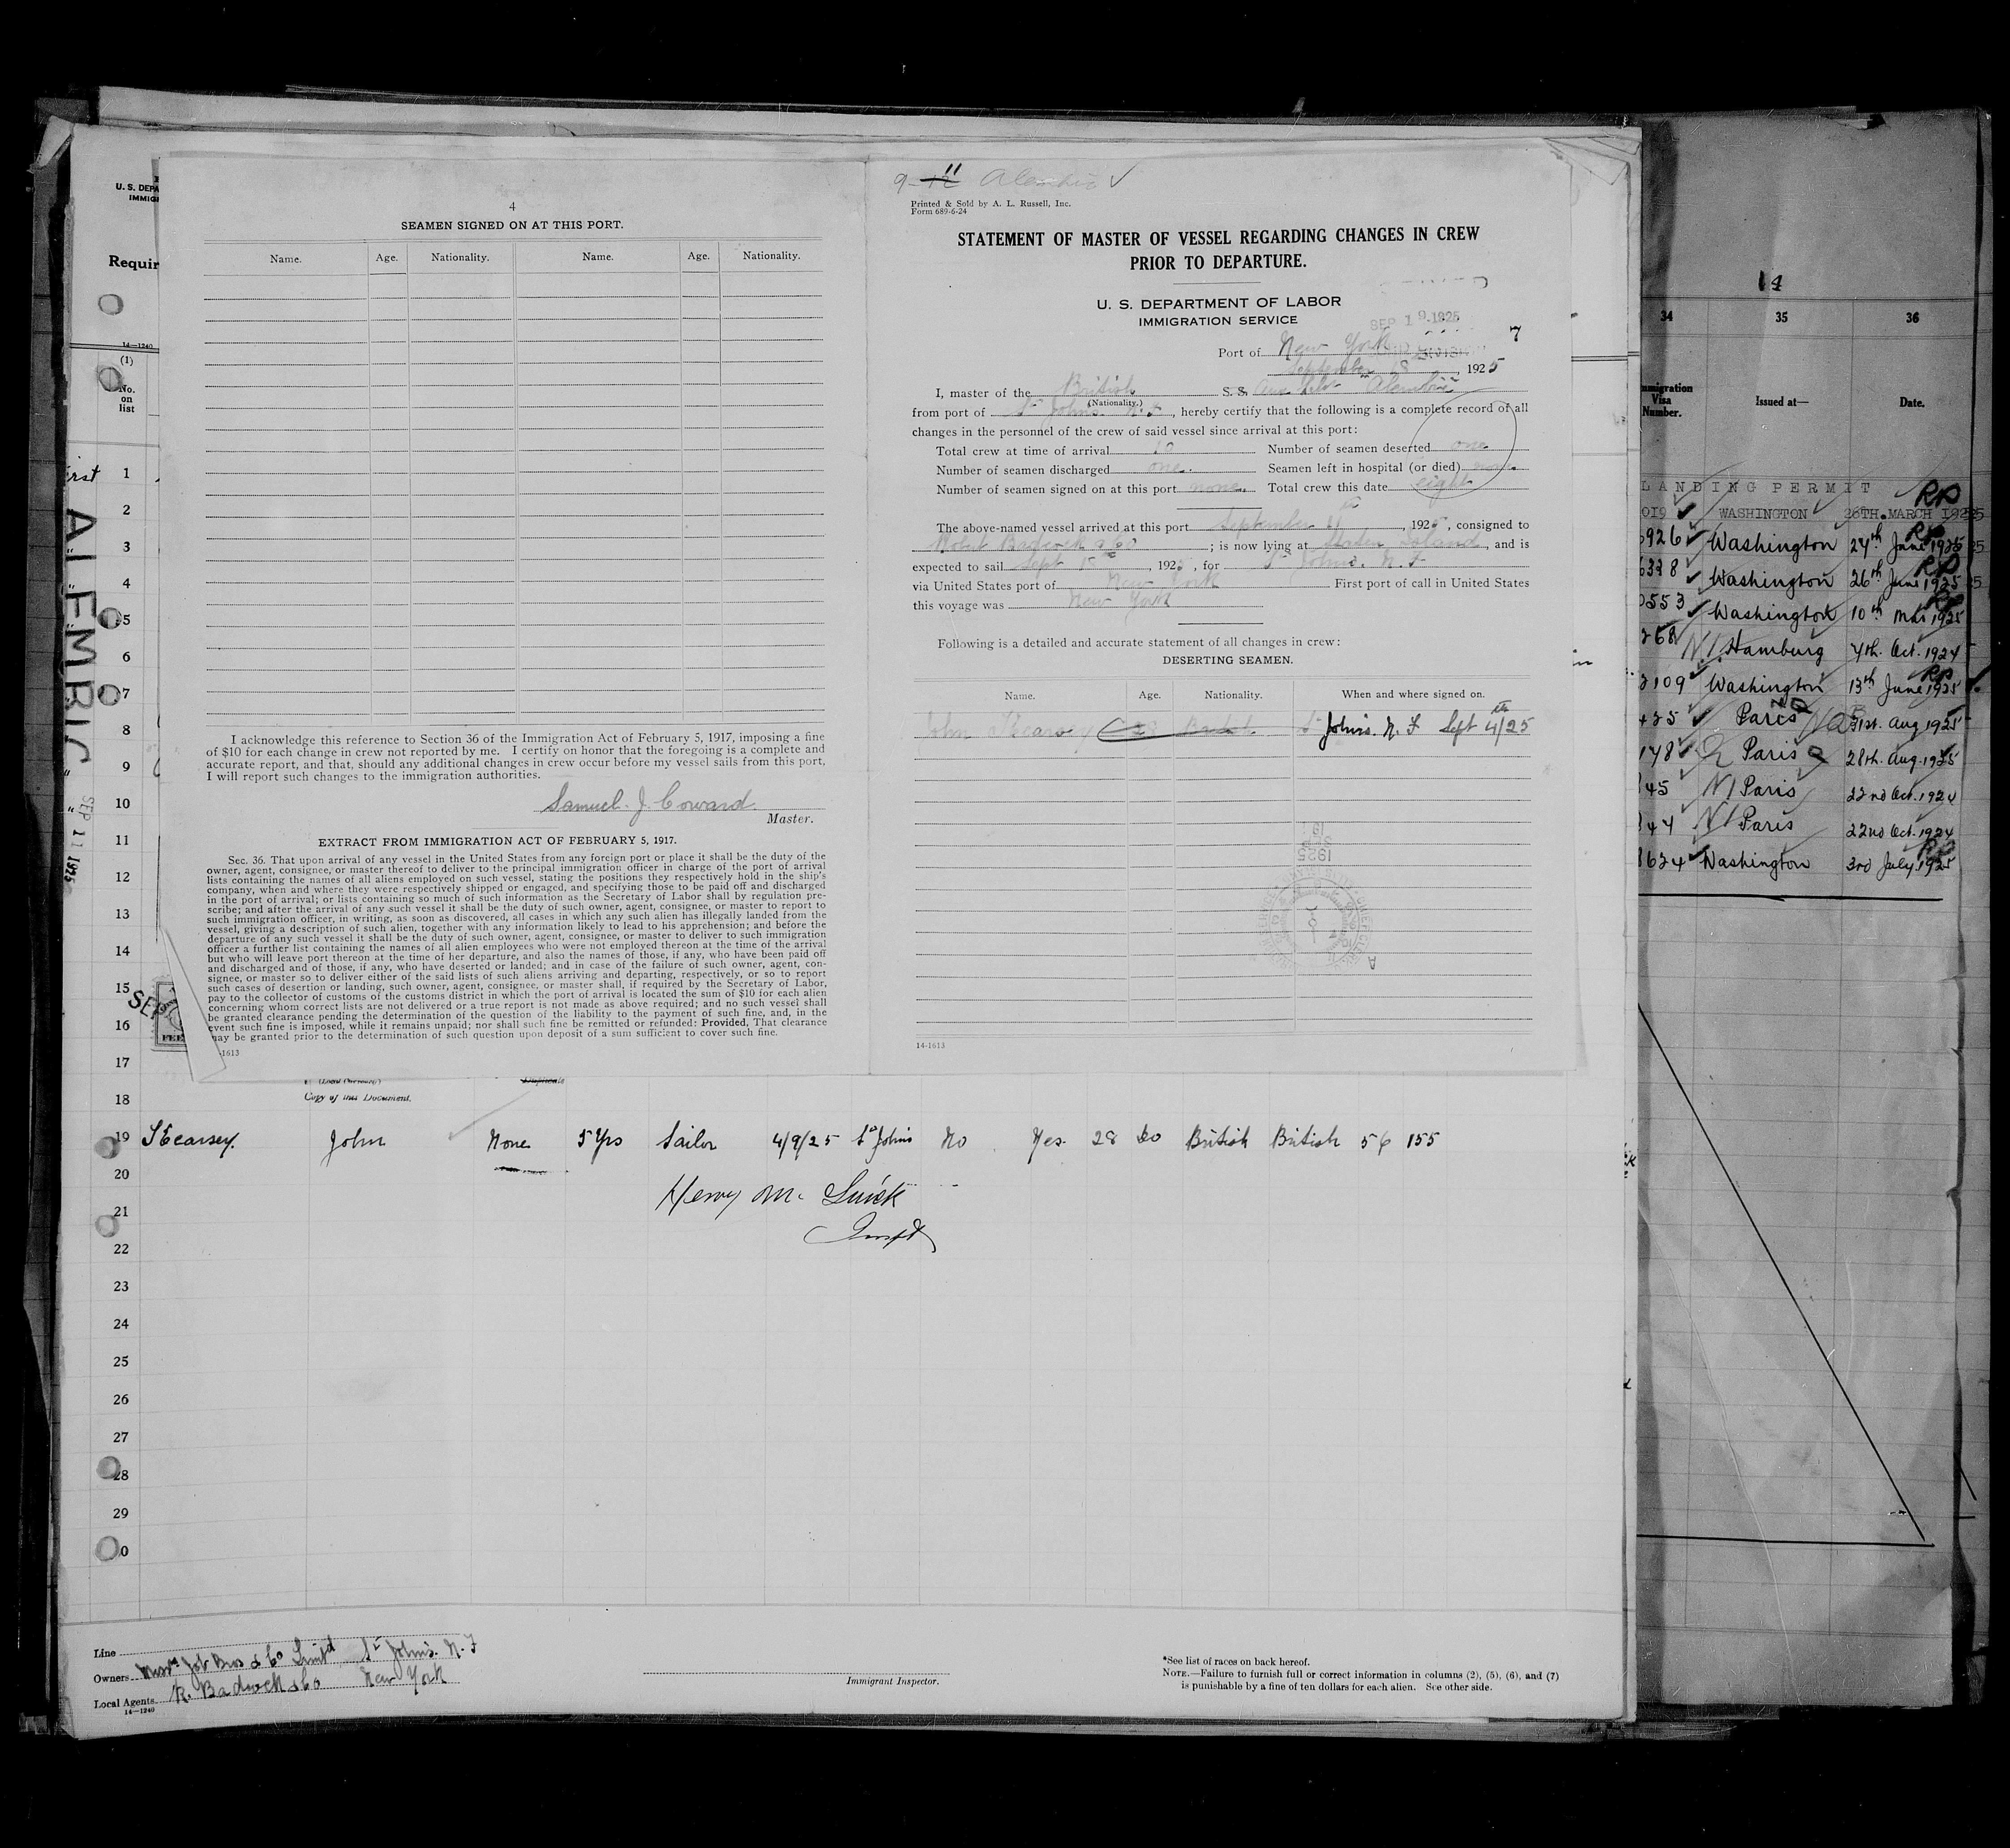 U. S. DEPA
IMMIG
Requir
14—1240
(1)
No.
on
list
ALEMBIC
SEP 11 1925
1
2
3
4
5
6
7
8
9
10
11
12
13
14
15
16
17
18
4
SEAMEN SIGNED ON AT THIS PORT.
Name. Age. Nationality. Name. Age. Nationality.
I acknowledge this reference to Section 36 of the Immigration Act of February 5, 1917, imposing a fine
of $10 for each change in crew not reported by me. I certify on honor that the foregoing is a complete and
accurate report, and that, should any additional changes in crew occur before my vessel sails from this port,
I will report such changes to the immigration authorities.
Samuel J. Coward
Master.
EXTRACT FROM IMMIGRATION ACT OF FEBRUARY 5, 1917.
Sec. 36. That upon arrival of any vessel in the United States from any foreign port or place it shall be the duty of the
owner, agent, consignee, or master thereof to deliver to the principal immigration officer in charge of the port of arrival
lists containing the names of all aliens employed on such vessel, stating the positions they respectively hold in the ship's
company, when and where they were respectively shipped or engaged, and specifying those to be paid off and discharged
in the port of arrival; or lists containing so much of such information as the Secretary of Labor shall by regulation pre-
scribe; and after the arrival of any such vessel it shall be the duty of such owner, agent, consignee, or master to report to
such immigration officer, in writing, as soon as discovered, all cases in which any such alien has illegally landed from the
vessel, giving a description of such alien, together with any information likely to lead to his apprehension; and before the
departure of any such vessel it shall be the duty of such owner, agent, consignee, or master to deliver to such immigration
officer a further list containing the names of all alien employees who were not employed thereon at the time of the arrival
but who will leave port thereon at the time of her departure, and also the names of those, if any, who have been paid off
and discharged and of those, if any, who have deserted or landed; and in case of the failure of such owner, agent, con-
signee, or master so to deliver either of the said lists of such aliens arriving and departing, respectively, or so to report
such cases of desertion or landing, such owner, agent, consignee, or master shall, if required by the Secretary of Labor,
pay to the collector of customs of the customs district in which the port of arrival is located the sum of $10 for each alien
concerning whom correct lists are not delivered or a true report is not made as above required; and no such vessel shall
be granted clearance pending the determination of the question of the liability to the payment of such fine, and, in the
event such fine is imposed, while it remains unpaid; nor shall such fine be remitted or refunded: Provided, That clearance
may be granted prior to the determination of such question upon deposit of a sum sufficient to cover such fine.
-1613
9-11 Alembic ✓
Printed & Sold by A. L. Russell, Inc.
Form 689-6-24
STATEMENT OF MASTER OF VESSEL REGARDING CHANGES IN CREW
PRIOR TO DEPARTURE.
U. S. DEPARTMENT OF LABOR
IMMIGRATION SERVICE
SEP 19 1925
Port of New York 7
September 8, 1925
I, master of the British S. S. Aux Schr "Alembic"
(Nationality.)
from port of St Johns N. F, hereby certify that the following is a complete record of all
changes in the personnel of the crew of said vessel since arrival at this port:
Total crew at time of arrival 10 Number of seamen deserted one
Number of seamen discharged one. Seamen left in hospital (or died) none
Number of seamen signed on at this port none. Total crew this date eight
The above-named vessel arrived at this port September 11, 1925, consigned to
Robert Badcock & Co; is now lying at Staten Island, and is
expected to sail Sept, 192, for St Johns. N. F
via United States port of New York First port of call in United States
this voyage was New York
Following is a detailed and accurate statement of all changes in crew:
DESERTING SEAMEN.
Name. Age. Nationality. When and where signed on.
John Kearsey 28 British St Johns. N. F Sept 4th/25
SEP
1925
14-1613
(Local Currency)
Duplicate
Copy of this Document.
19 Kearsey. John None 5 Yrs Sailor 4/9/25 St Johns No Yes 28 do British British 56 155
20
Henry M. Quick
21
Inspt
22
23
24
25
26
27
28
29
0
Line
Owners Messrs Job Bros & Co Limtd St Johns. N. F
Local Agents R. Badcock & Co New York
14—1240
Immigrant Inspector.
*See list of races on back hereof.
NOTE.—Failure to furnish full or correct information in columns (2), (5), (6), and (7)
is punishable by a fine of ten dollars for each alien. See other side.
14
34 35 36
mmigration
Visa
Number.
Issued at—
Date.
LANDING PERMIT RP
019 ✓ WASHINGTON 26TH. MARCH 1925
926 ✓ Washington 24th June 1925 RP
338 ✓ Washington 26th June 1925 RP
0553 ✓ Washington 10th Mar 1925 RP
268 N/. Hamburg 4th. Oct. 1924
2109 Washington 13th June 1925 RP
425 ✓ Paris 31st. Aug 1925
148 ✓ Paris 28th. Aug. 1925
45 N/ Paris 22nd Oct. 1924
44 N/ Paris 22nd Oct. 1924
1624 ✓ Washington 3rd July. 1925 RP